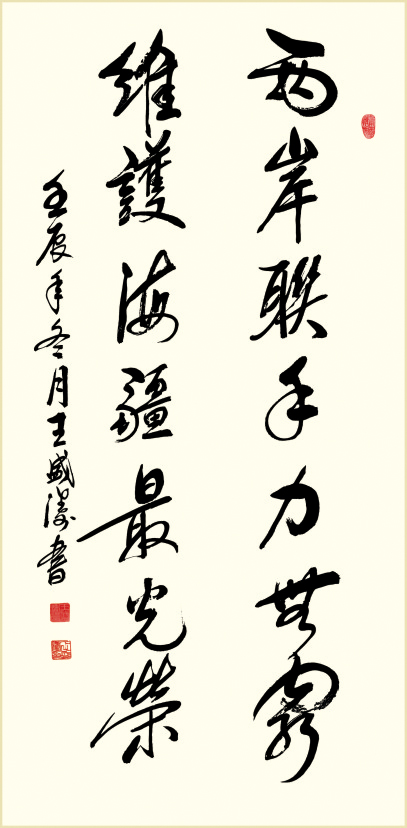 兩岸聯手力無窮
維護海疆最光榮
壬辰年冬月王盛書